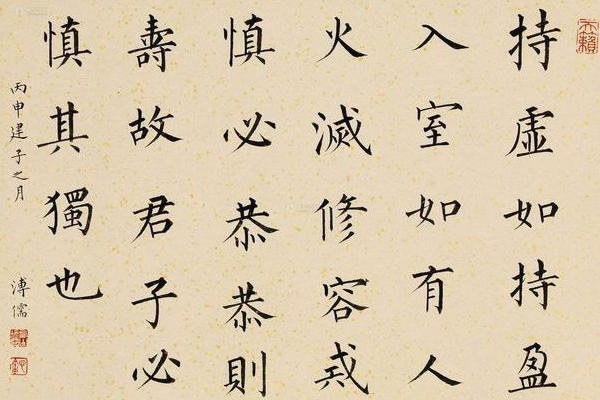 天籟
持虛如持盈
入室如有人
火滅修容戒
慎必恭恭則
壽故君子必
慎其獨也
丙申建子之月 溥儒